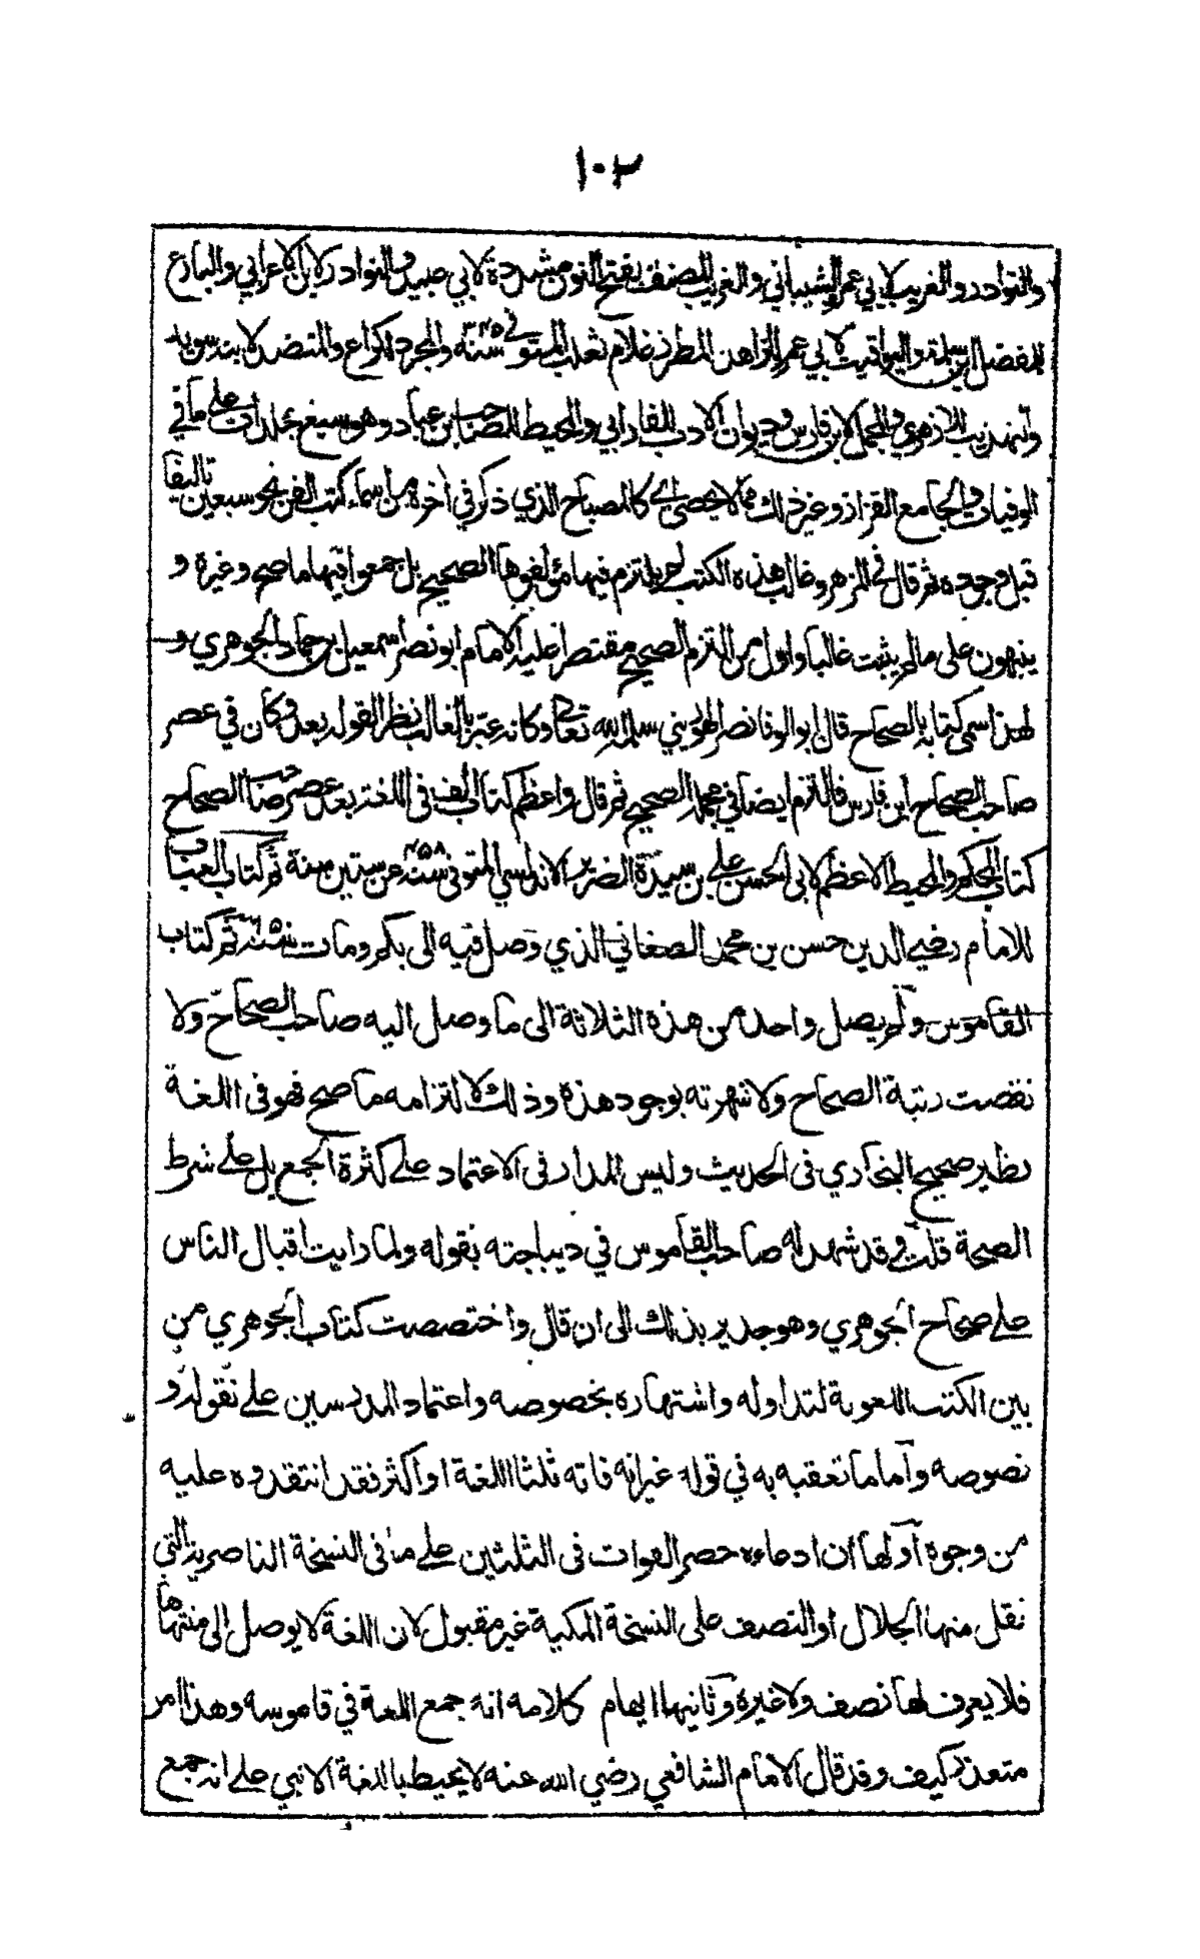 ١٠٣
والنوادر والغريب لابي عمرو الشيباني والغريب المصنف بفتح النون مشددة لابي عبيد والنوادر لابن الاعرابي والبارع
للمفضل ابن سلمة واليواقيت لابي عمر الزاهد المطرز غلام ثعلب المتوفى سنة ٣٤٥ والمجرد لكراع والمنضد لا بند سويد
وتهذيب للازهري والمجمل لابن فارس وديوان الادب للفارابي والمحيط للصاحب ابن عباد وهو سبع مجلدات على ما في
الوفيات والجامع القزاز وغير ذلك مما لا يحصى كالمصباح الذي ذكر في اخره من اسماء كتب الفن نحو سبعين تاليفا
قبل وجوده ثم قال في المزهر وغالب هذه الكتب لم يلتزم فيها مؤلفوها الصحيح بل جمعوا فيها ما صح وغيره و
ينبهون على ما لم يثبت غالبا واول من التزم الصحيح مقتصرا عليه الامام ابو نصر اسمعيل بن حماد الجوهري و
لهذا سمى كتابه بالصحاح قال ابو الوفا نصر الهوريني سلمه الله تعالى وكانه عبر بالغالب نظرا لقوله بعد وكان في عصر
صاحب الصحاح ابن فارس فالتزم ايضا في مجمله الصحيح ثم قال واعظم كتاب الف في اللغة بعد عصر صاحب الصحاح
كتاب المحكم والمحيط الاعظم لابي الحسن علي بن سيدة الضرير الاندلسي المتوفى سنة ٤٥٨ عن ستين سنة ثم كتاب العباب
للامام رضي الدين حسن بن محمد الصغاني الذي وصل فيه الى بكم ومات سنة ثم كتاب
القاموس ولم يصل واحد من هذه الثلاثة الى ما وصل اليه صاحب الصحاح ولا
نقصت رتبة الصحاح ولا شهرته بوجود هذه وذلك لالتزامه ما صح فهو في اللغة
نظير صحيح البخاري في الحديث وليس المدار في الاعتماد على كثرة الجمع بل على شرط
الصحة قلت وقد شهد له صاحب القاموس في ديباجته بقوله ولما رايت اقبال الناس
على صحاح الجوهري وهو جدير بذلك الى ان قال واختصصت كتاب الجوهري من
بين الكتب اللغوية لتداوله واشتهاره بخصوصه واعتماد المدرسين على نقوله و
نصوصه واما ما تعقبه به في قوله غير انه فاته ثلثا اللغة او اكثر فقد انتقدوه عليه
من وجوه اولها ان ادعاءه حصر الفوات في الثلثين على ما في النسخة الناصرية التي
نقل منها الجلال او النصف على النسخة المكية غير مقبول لان اللغة لا يوصل الى منتهاها
فلا يعرف لها نصف ولا غيره وثانيها ايهام كلامه انه جمع اللغة في قاموسه وهذا امر
متعذر كيف وقد قال الامام الشافعي رضي الله عنه لا يحيط بااللغة الا نبي على انه جمع